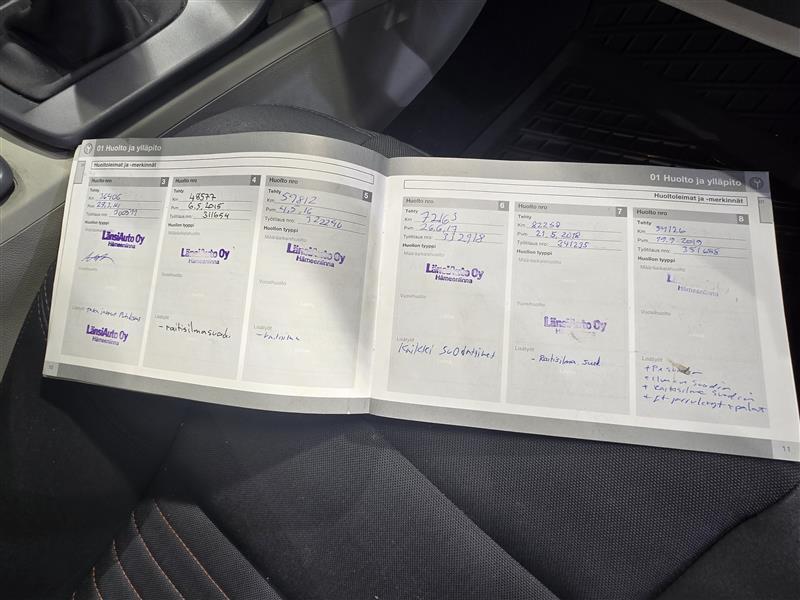 01 Huolto ja ylläpito
Huoltoleimat ja -merkinnät
Huolto nro 3
Tehty
Km
Pvm
Työtilaus nro:
Huollon tyyppi
LänsiAuto Oy
Hämeenlinna
Vuosihuolto
Lisätyöt
LänsiAuto Oy
Hämeenlinna
10
Huolto nro 4
Tehty
Km 48577
Pvm 6.5.2015
Työtilaus nro: 311654
Huollon tyyppi
Määräaikaishuolto
LänsiAuto Oy
Hämeenlinna
Vuosihuolto
Lisätyöt
- raitisilmasuodin
Huolto nro 5
Tehty
Km 59812
Pvm
Työtilaus nro: 322296
Huollon tyyppi
Määräaikaishuolto
LänsiAuto Oy
Hämeenlinna
Vuosihuolto
Lisätyöt
01 Huolto ja ylläpito
Huoltoleimat ja -merkinnät
Huolto nro 6
Tehty
Km 72163
Pvm 26.6.17
Työtilaus nro: 312918
Huollon tyyppi
Määräaikaishuolto
LänsiAuto Oy
Hämeenlinna
Vuosihuolto
Lisätyöt
Kaikki suodattimet
Huolto nro 7
Tehty
Km 82258
Pvm 21.5.2018
Työtilaus nro: 341225
Huollon tyyppi
Määräaikaishuolto
Vuosihuolto
LänsiAuto Oy
Hämeenlinna
Lisätyöt
- Raitisilma. suod
Huolto nro 8
Tehty
Km
Pvm 19.9.2019
Työtilaus nro: 351688
Huollon tyyppi
Määräaikaishuolto
LänsiAuto Oy
Hämeenlinna
Vuosihuolto
Lisätyöt
+ ilman suodin
+ Raitisilma suodin
+ et jarrulevyt + palat
11